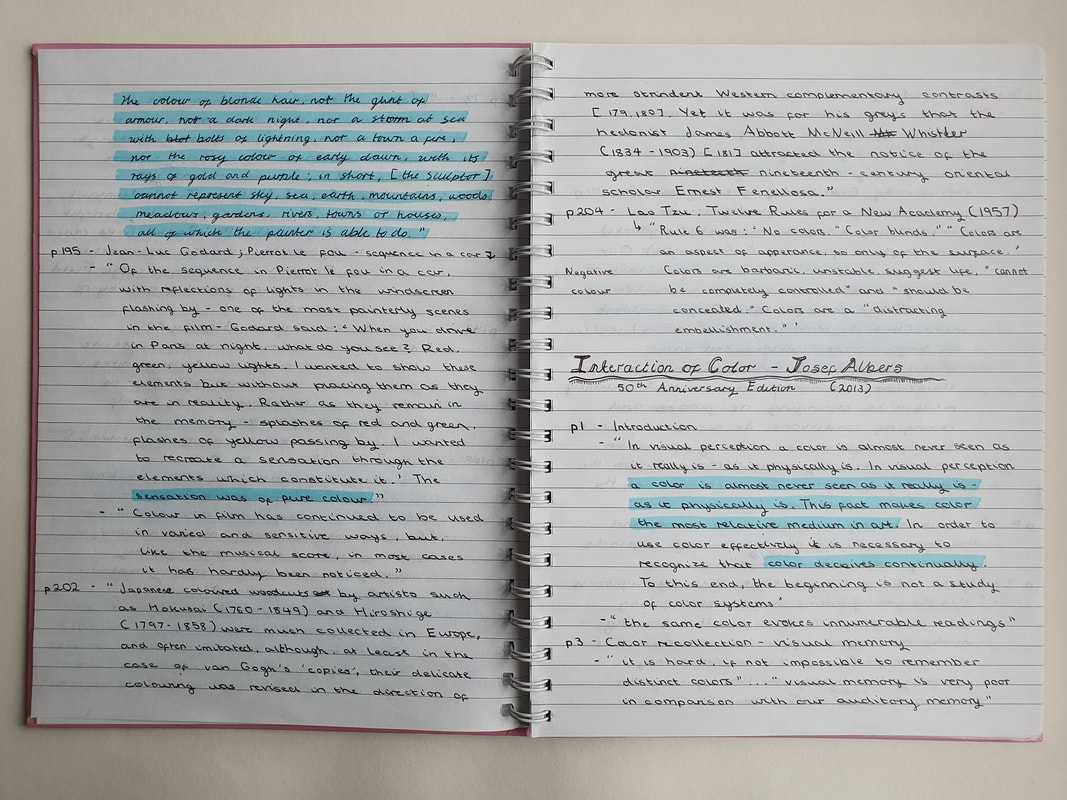 the colour of blonde hair, not the glint of
armour, not a dark night, nor a storm at sea
with blot bolts of lightning, not a town a fire,
nor the rosy colour of early dawn, with its
rays of gold and purple; in short, [the sculptor]
cannot represent sky, sea, earth, mountains, woods,
meadows, gardens, rivers, towns or houses,
all of which the painter is able to do."
p195 - Jean-Luc Godard; Pierrot le fou - sequence in a car
- "Of the sequence in Pierrot le fou in a car,
with reflections of lights in the windscreen
flashing by - one of the most painterly scenes
in the film - Godard said: 'When you drive
in Paris at night, what do you see? Red,
green, yellow lights. I wanted to show these
elements but without placing them as they
are in reality. Rather as they remain in
the memory - splashes of red and green,
flashes of yellow passing by. I wanted
to recreate a sensation through the
elements which constitute it.' The
sensation was of pure colour"
- "Colour in film has continued to be used
in varied and sensitive ways, but,
like the musical score, in most cases
it has hardly been noticed."
p202 - "Japanese coloured woodcuts by artists such
as Hokusai (1760-1849) and Hiroshige
(1797-1858) were much collected in Europe,
and often imitated, although, at least in the
case of van Gogh's 'copies', their delicate
colouring was revised in the direction of
more strindent Western complementary contrasts
[179,180]. Yet it was for his greys that the
hedonist James Abbott McNeill Whistler
(1834-1903) [181] attracted the notice of the
great nineteeth nineteenth-century oriental
scholar Ernest Fenellosa."
p204 - Lao Tzu, Twelve Rules for a New Academy (1957)
↳ "Rule 6 was: 'No colors. "Color blinds." "Colors are
an aspect of apperance, so only of the surface."
Negative Colors are barbaric, unstable, suggest life, "cannot
colour be completely controlled" and "should be
concealed." Colors are a "distracting
embellishment."'
Interaction of Color - Josef Albers
50th Anniversary Edition (2013)
p1 - Introduction
- "In visual perception a color is almost never seen as
it really is - as it physically is. In visual perception
a color is almost never seen as it really is -
as it physically is. This fact makes color
the most relative medium in art. In order to
use color effectively it is necessary to
recognize that color deceives continually.
To this end, the beginning is not a study
of color systems"
- "the same color evokes innumerable readings"
p3 - Color recollection - visual memory
- "it is hard, if not impossible to remember
distinct colors"..."visual memory is very poor
in comparison with our auditory memory"